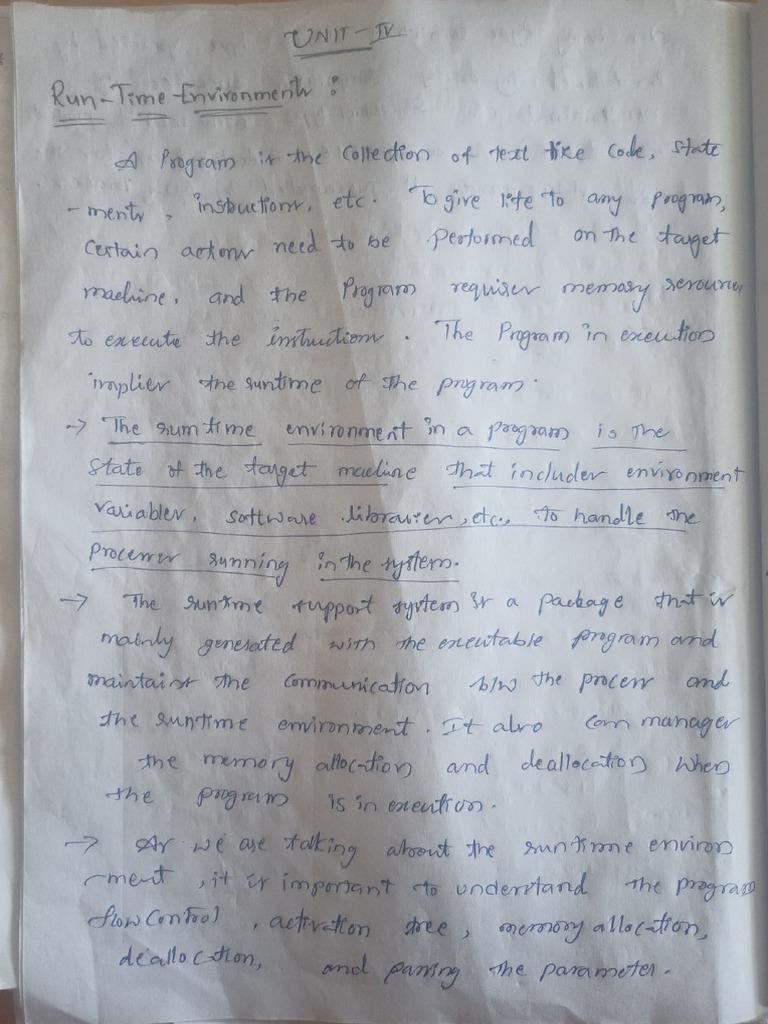 UNIT-IV
Run-Time-Environments :
A Program is the collection of text like code, state
-ments, instructions, etc. To give life to any program,
certain actions need to be performed on the target
machine, and the Program requires memory resources
to execute the instructions. The Program in execution
implies the runtime of the program.
→ The runtime environment in a program is the
state of the target machine that includes environment
variables, software libraries, etc., to handle the
Processes running in the system.
→ The runtime support system is a package that is
mainly generated with the executable program and
maintains the communication b/w the process and
the runtime environment. It also can manages
the memory allocation and deallocation when
the program is in execution.
→ As we are talking about the runtime environ
-ment, it is important to understand the program
flow control, activation tree, memory allocation,
deallocation, and passing the parameter.